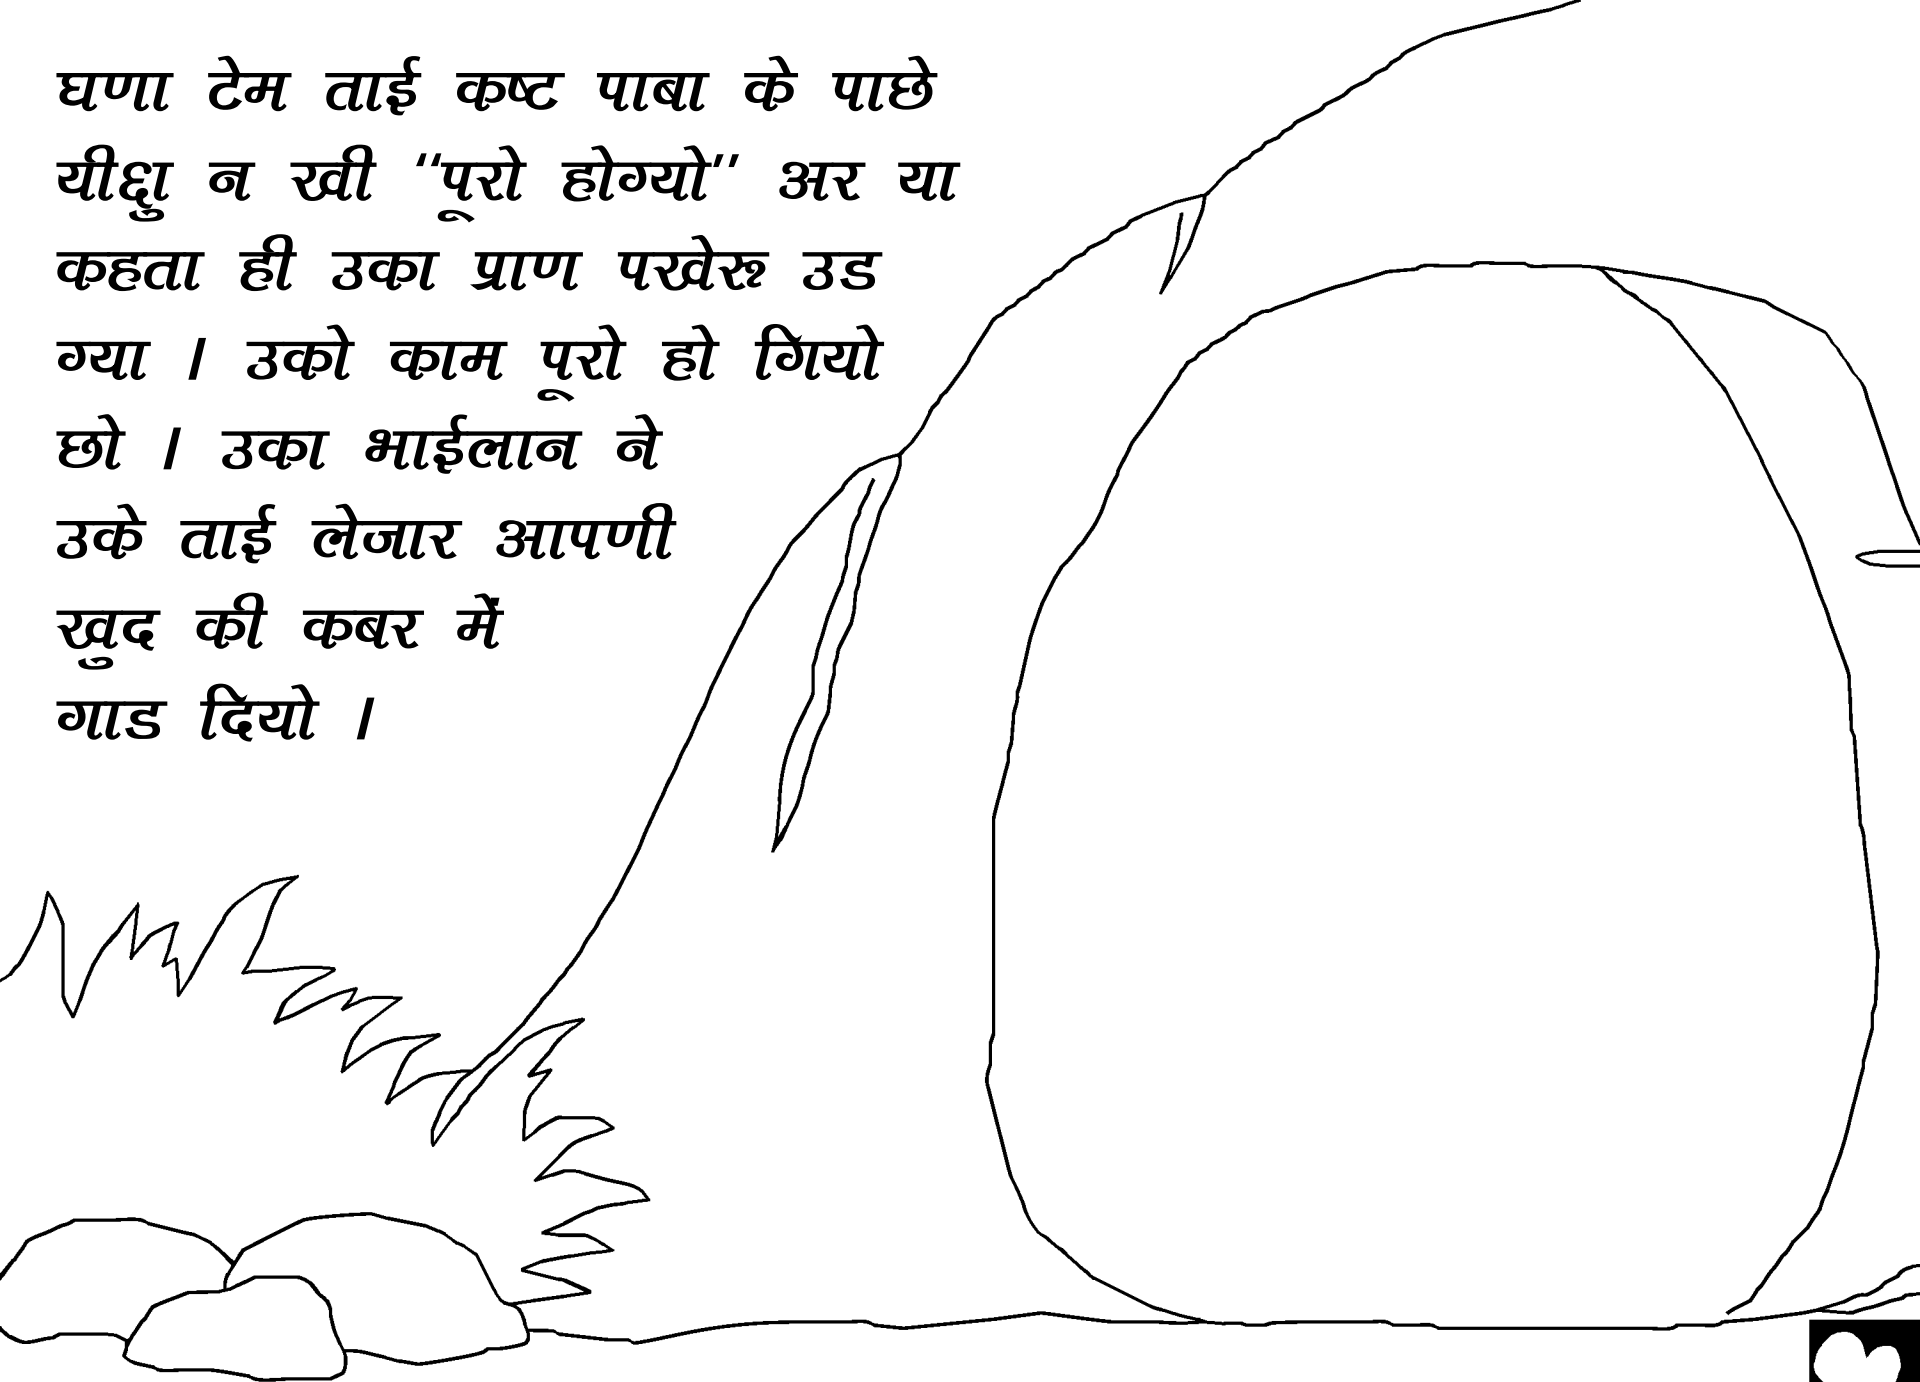 घणा टेम ताई कष्ट पाबा के पाछे
यीशु न खी “पूरो होग्यो” अर या
कहता ही उका प्राण पखेरू उड
ग्या । उको काम पूरो हो गियो
छो । उका भाईलान ने
उके ताई लेजार आपणी
खुद की कबर में
गाड दियो ।